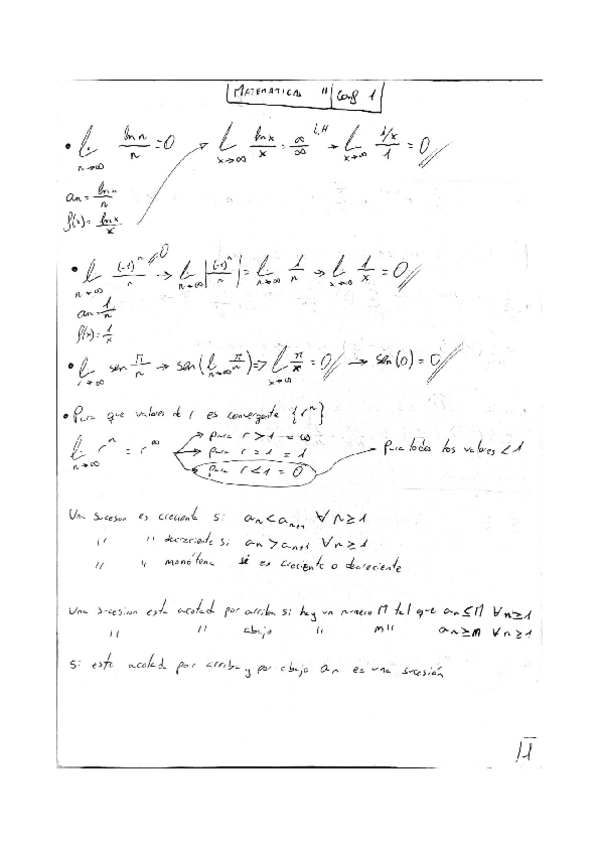 MATEMATICAS II Conf 1
• l. n→∞ ln n / n = 0 → l. x→∞ ln x / x = ∞/∞ L'H → l. x→∞ 1/x / 1 = 0
an = ln n / n
f(x) = ln x / x
• l. n→∞ (-1)^n / n → 0 → l. n→∞ |(-1)^n / n| = l. n→∞ 1/n → l. x→∞ 1/x = 0
an = 1/n
f(x) = 1/x
• l. n→∞ sen π/n → sen (l. n→∞ π/n) => l. x→∞ π/x = 0 → sen(0) = 0
• Para que valores de r es convergente {r^n}
l. n→∞ r^n = r^∞ → para r > 1 = ∞
→ para r = 1 = 1
→ para r < 1 = 0 — para todos los valores < 1
Una sucesion es creciente si an < an+1 ∀ n ≥ 1
" " decreciente si an > an+1 ∀ n ≥ 1
" " monótona si es creciente o decreciente
Una sucesion esta acotada por arriba si hay un numero M tal que an ≤ M ∀ n ≥ 1
" " abajo " m " an ≥ m ∀ n ≥ 1
Si esta acotada por arriba y por abajo an es una sucesión